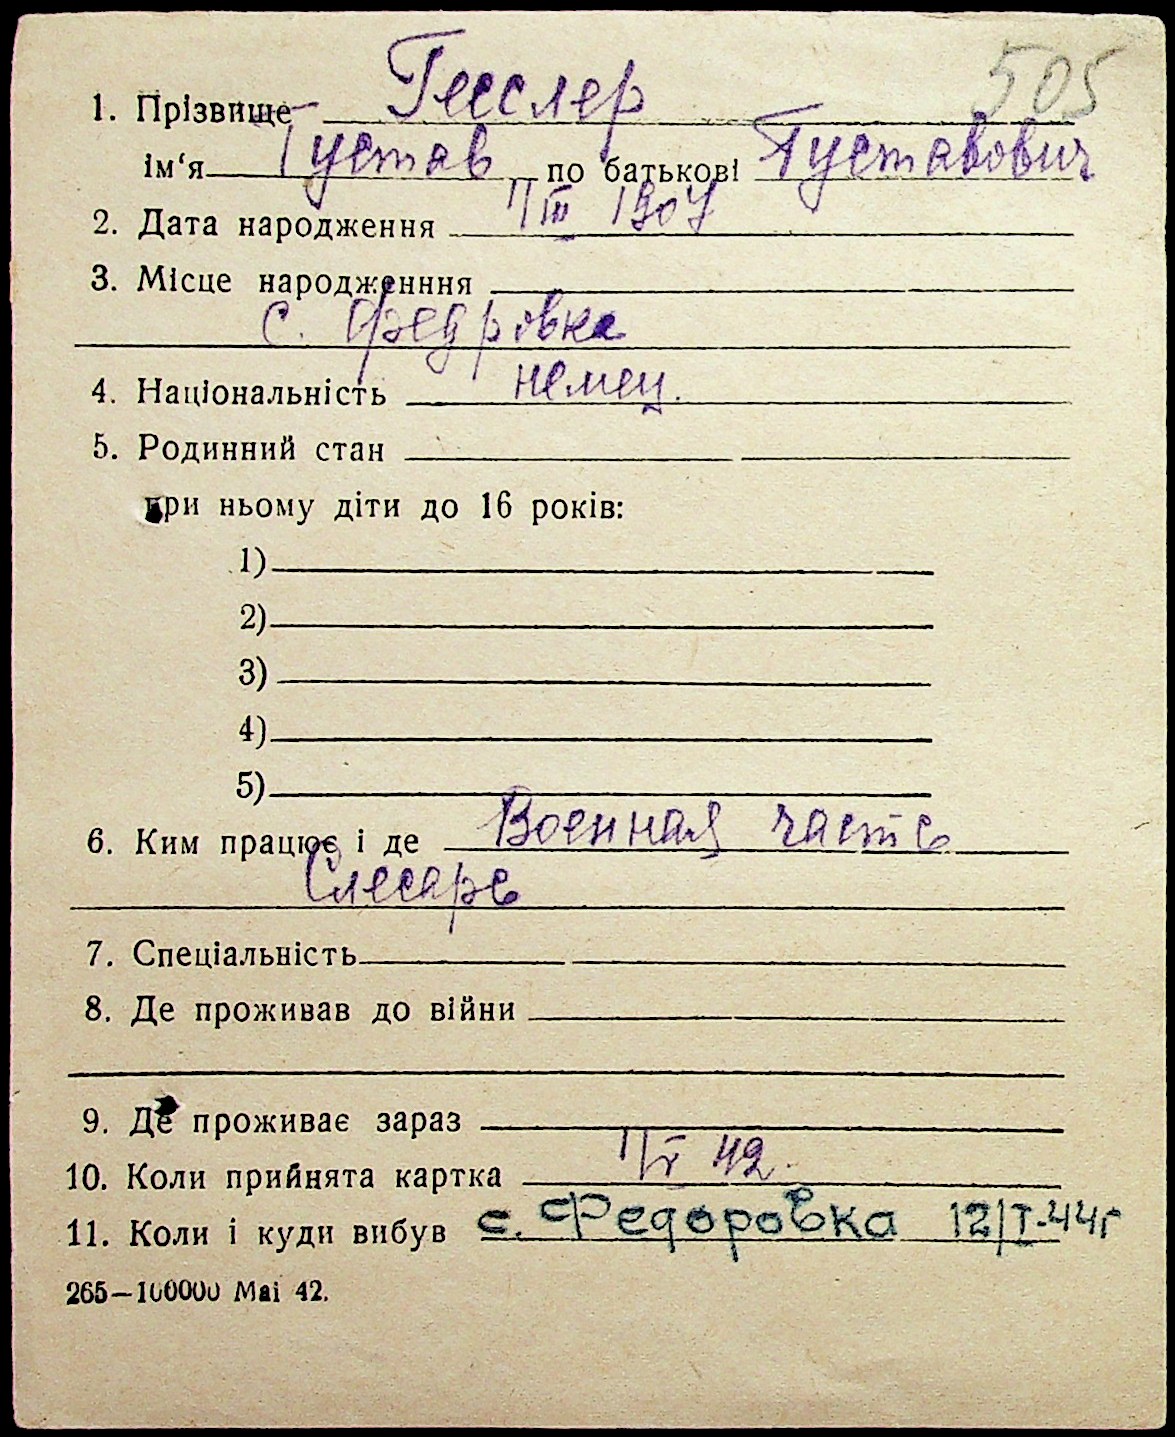 505
1. Прізвище Гесслер
ім‘я Густав по батькові Густавович
2. Дата народження 11/III 1907
3. Місце народженння
с. Федровка
4. Національність немец.
5. Родинний стан
при ньому діти до 16 років:
1)
2)
3)
4)
5)
6. Ким працює і де Военная часть
Слесарь
7. Спеціальність
8. Де проживав до війни
9. Де проживає зараз
10. Коли прийнята картка 42.
11. Коли і куди вибув с. Федоровка 12/I-44г
265—100000 Mai 42.